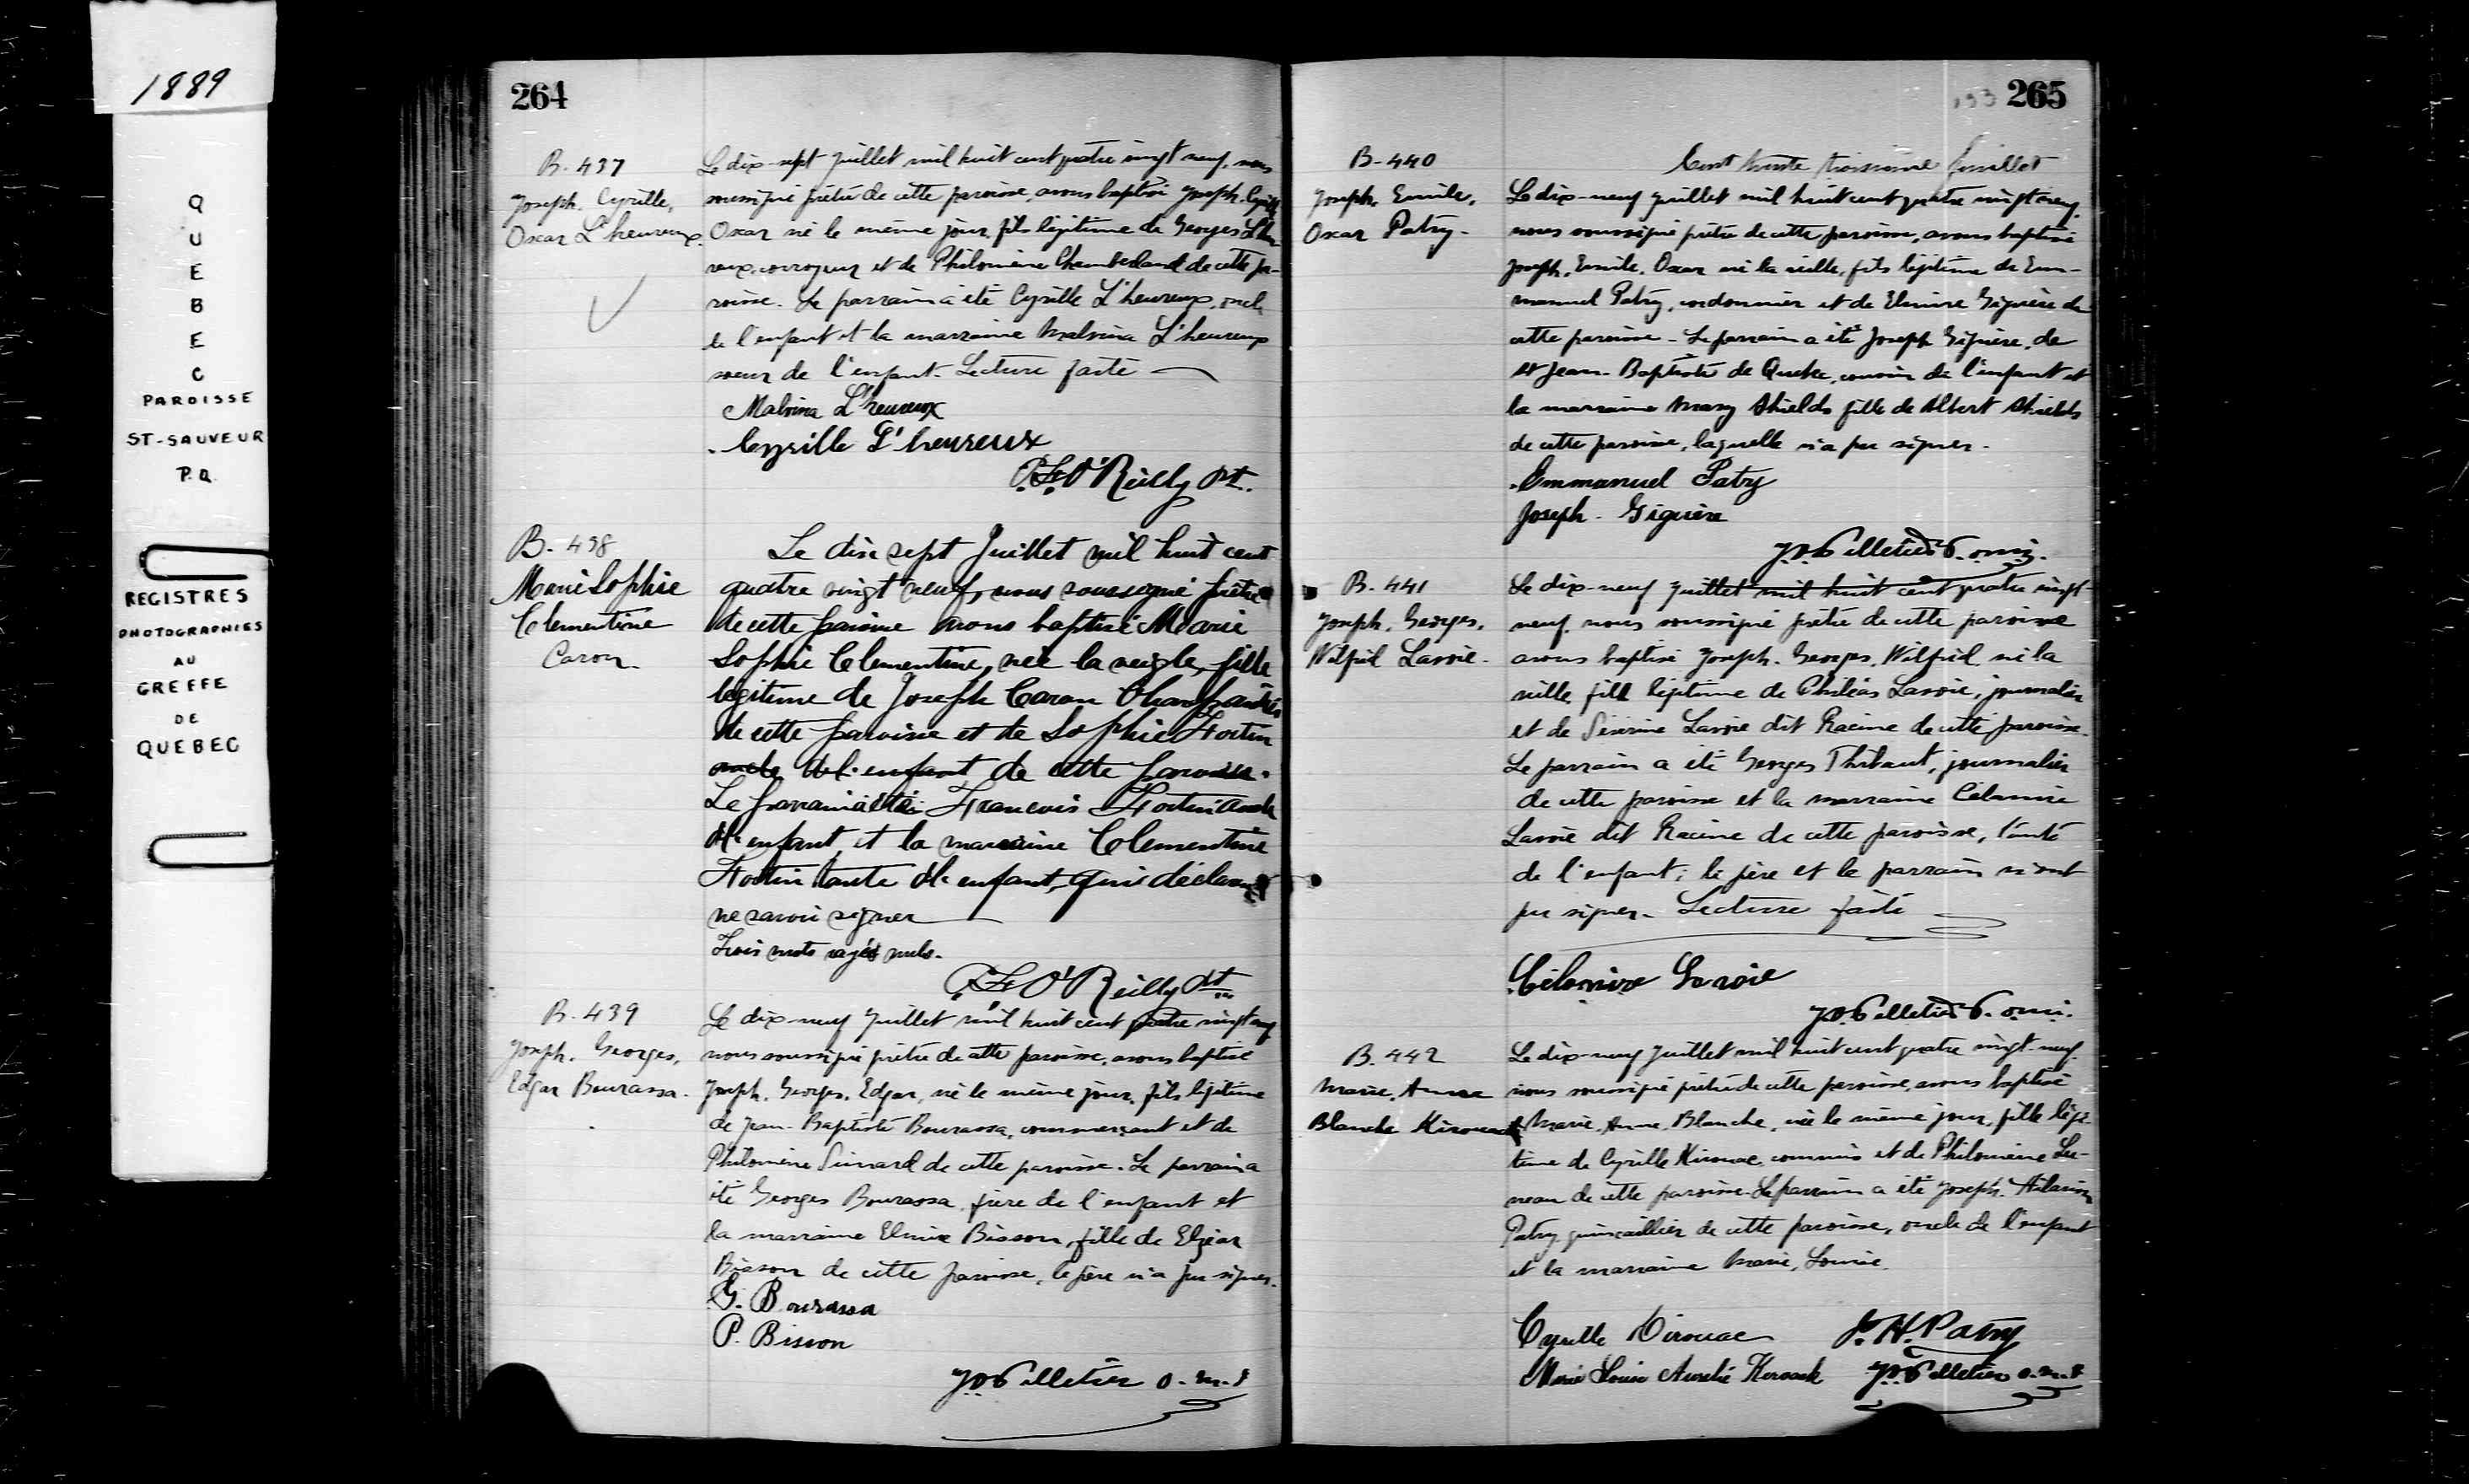 1889
QUEBEC
PAROISSE
ST-SAUVEUR
P.Q.
REGISTRES
PHOTOGRAPHIÉS
AU
GREFFE
DE
QUEBEC
264
B. 437
Joseph. Cyrille,
Oscar L'heureux.
Le dix-sept juillet mil huit cent quatre vingt neuf, nous
soussigné prêtre de cette paroisse, avons baptisé Joseph. Cyrille
Oscar né le même jour, fils légitime de Georges L'heu
reux, corroyeur et de Philomène Chamberland de cette pa-
roisse. Le parrain a été Cyrille L'heureux, oncle
de l'enfant et la marraine Malvina L'heureux
soeur de l'enfant. Lecture faite
Malvina L'heureux
Cyrille L'heureux
P. O'Reilly Pt.
B. 438
Marie Sophie
Clementine
Caron
Le dix sept Juillet mil huit cent
quatre vingt neuf, nous soussigné prêtre
de cette paroisse avons baptisé Marie
Sophie Clementine, née la veille, fille
légitime de Joseph Caron Charpentier
de cette paroisse et de Sophie Fortin
oncle de l'enfant de cette paroisse.
Le parrain a été François Fortin oncle
de l'enfant, et la marraine Clementine
Fortin tante de l'enfant, qui déclarent
ne savoir signer
Trois mots rayés nuls.
P. O'Reilly Pt
B. 439
Joseph. Georges,
Edgar Bourassa.
Le dix-neuf juillet mil huit cent quatre vingt neuf
nous soussigné prêtre de cette paroisse, avons baptisé
Joseph. Georges. Edgar, né le même jour, fils légitime
de Jean-Baptiste Bourassa, commerçant et de
Philomène Simard de cette paroisse. Le parrain a
été Georges Bourassa, frère de l'enfant et
la marraine Elmire Bisson, fille de Elzéar
Bisson de cette paroisse, le père n'a pu signer.
G. Bourassa
P. Bisson
Pelletier o.m.i
133 265
Cent trente troisième feuillet
B-440
Joseph. Emile.
Oscar Patry-
Le dix-neuf juillet mil huit cent quatre vingt neuf
nous soussigné prêtre de cette paroisse, avons baptisé
Joseph. Emile. Oscar né la veille, fils légitime de Em-
manuel Patry, cordonnier et de Elmire Giguère de
cette paroisse - Le parrain a été Joseph Giguère, de
St Jean-Baptiste de Quebec, cousin de l'enfant et
la marraine Mary Shields fille de Albert Shields
de cette paroisse, laquelle n'a pu signer.
Emmanuel Patry
Joseph Giguère
Pelletier o.m.i.
B. 441
Joseph. Georges.
Wilfrid Lavoie.
Le dix-neuf juillet mil huit cent quatre vingt-
neuf. nous soussigné prêtre de cette paroisse
avons baptisé Joseph. Georges. Wilfrid né la
veille, fils légitime de Philéas Lavoie, journalier
et de Séverine Lavoie dit Racine de cette paroisse.
Le parrain a été Georges Thibaut, journalier
de cette paroisse et la marraine Célanire
Lavoie dit Racine de cette paroisse, tante
de l'enfant; le père et le parrain n'ont
pu signer. Lecture faite
Célanire Lavoie
Pelletier o.m.i.
B. 442
Marie. Anne
Blanche Kirouack
Le dix-neuf juillet mil huit cent quatre vingt-neuf.
nous soussigné prêtre de cette paroisse, avons baptisé
Marie. Anne. Blanche, née le même jour, fille légi-
time de Cyrille Kirouac, commis et de Philomène Lu-
neau de cette paroisse. Le parrain a été Joseph. Hilarion
Patry quincaillier de cette paroisse, oncle de l'enfant
et la marraine Marie, Louise.
Cyrille Kirouac J. H. Patry
Marie Louise Aurelie Kerouack Pelletier o.m.i